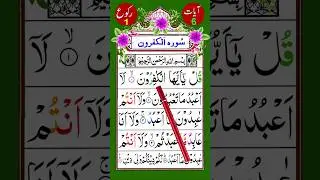 آیات 6
رکوع ۱
سورة الكفرون
بِسْمِ اللهِ الرَّحْمٰنِ الرَّحِيْمِ
قُلْ يٰۤاَيُّهَا الْكٰفِرُوْنَ ۙ لَاۤ
اَعْبُدُ مَا تَعْبُدُوْنَ ۙ وَلَاۤ اَنْتُمْ
عٰبِدُوْنَ مَاۤ اَعْبُدُ ۚ وَلَاۤ اَنَا
عَابِدٌ مَّا عَبَدْتُّمْ ۙ وَلَاۤ اَنْتُمْ
عٰبِدُوْنَ مَاۤ اَعْبُدُ ؕ لَكُمْ دِيْنُكُمْ وَلِيَ دِيْنِ